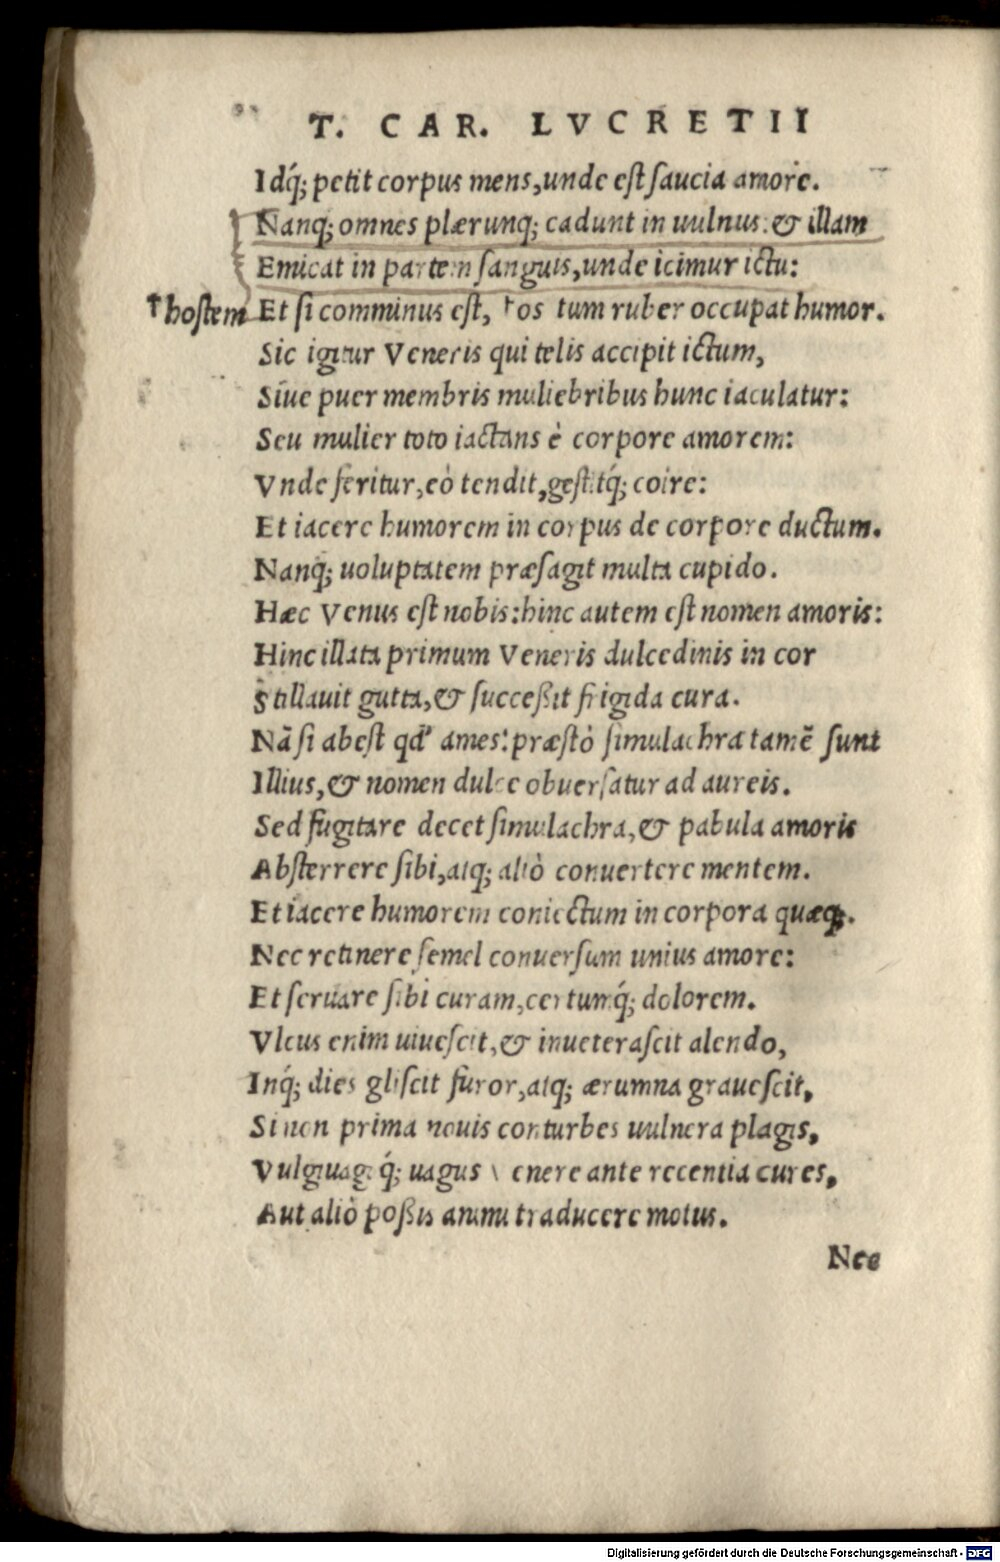 T. CAR. LVCRETII
Idq́; petit corpus mens, unde est saucia amore.
Nanq; omnes plærunq; cadunt in uulnus: & illam
Emicat in partem sanguis, unde icimur ictu:
†hostem Et si comminus est, †os tum ruber occupat humor.
Sic igitur Veneris qui telis accipit ictum,
Siue puer membris muliebribus hunc iaculatur:
Seu mulier toto iactans è corpore amorem:
Vnde feritur, eò tendit, gestitq́; coire:
Et iacere humorem in corpus de corpore ductum.
Nanq́; uoluptatem præsagit multa cupido.
Hæc Venus est nobis: hinc autem est nomen amoris:
Hinc illata primum Veneris dulcedinis in cor
Stillauit gutta, & succeßit frigida cura.
Nã si abest qd' ames: præstò simulachra tamẽ sunt
Illius, & nomen dulce obuersatur ad aureis.
Sed fugitare decet simulachra, & pabula amoris
Absterrere sibi, atq; aliò conuertere mentem.
Et iacere humorem coniectum in corpora quæq;.
Nec retinere semel conuersum unius amore:
Et seruare sibi curam, certumq́; dolorem.
Vlcus enim uiuescit, & inueterascit alendo,
Inq́; dies gliscit furor, atq; ærumna grauescit,
Si non prima nouis conturbes uulnera plagis,
Vulgiuagaq́; uagus Venere ante recentia cures,
Aut aliò poßis animi traducere motus.
Nec
Digitalisierung gefördert durch die Deutsche Forschungsgemeinschaft - DFG